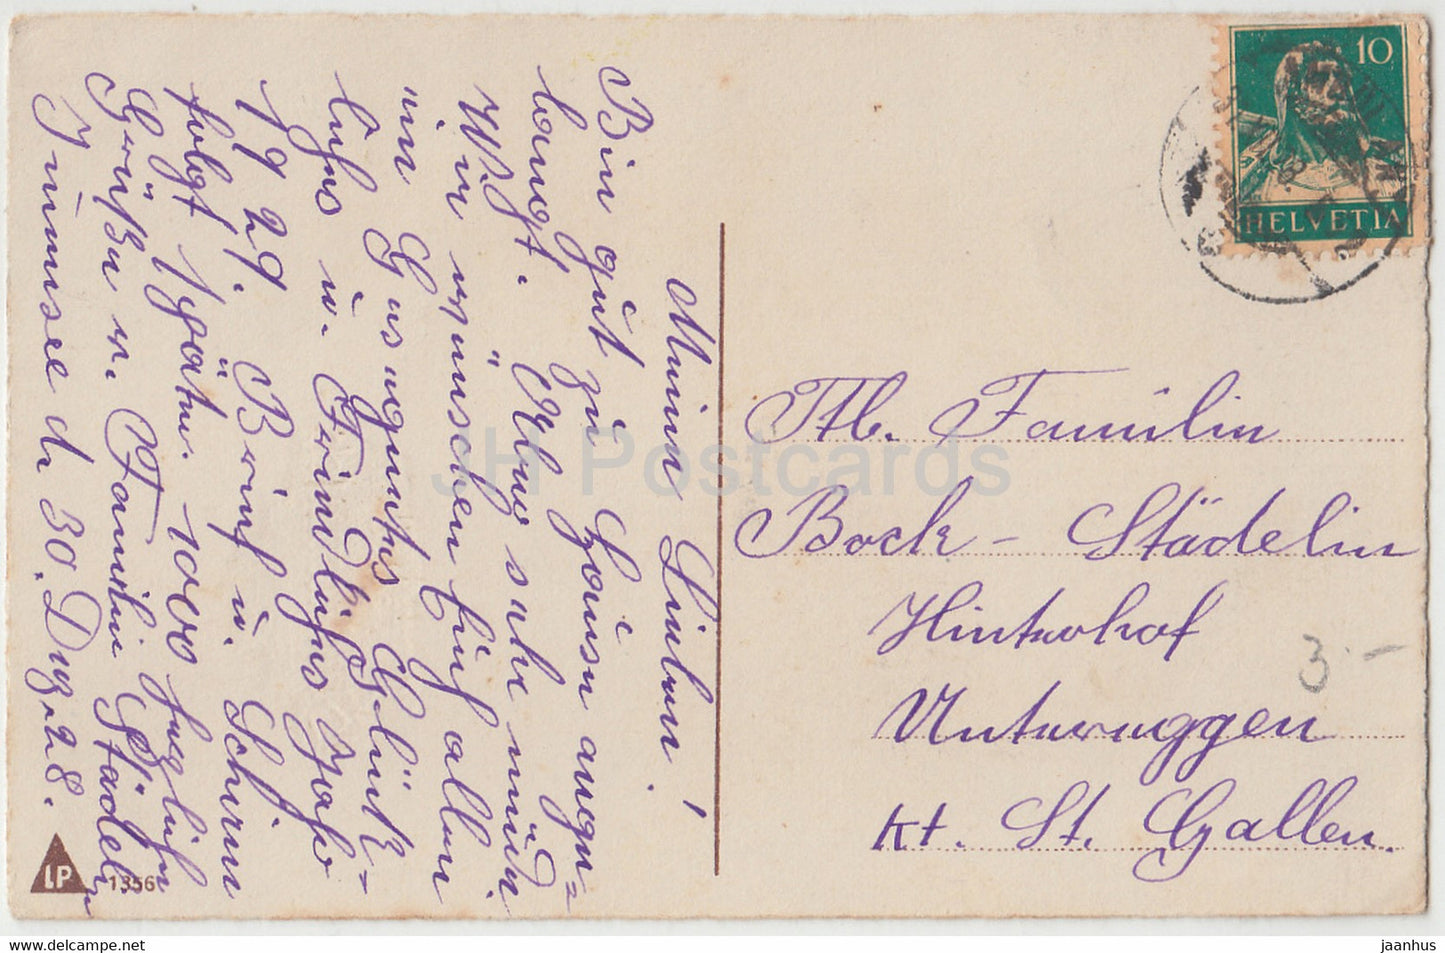 Meine Lieben!
Bin gut zu Hause ange=
langt. Aber sehr müde
Wir wünschen Euch allen
ein Gesegnetes Glück=
liches u. Freudiges Jahr
1929. Brief u. Schirm
folgt später. 1000 herzliche
Grüße v. Familie Städelin
Immensee d. 30. Dez. 28.
LP
1356
10
HELVETIA
Tit. Familie
Bock - Städelin
Hinterhof
Unteruggen
Kt. St. Gallen.
3.-
JH Postcards
www.delcampe.net
jaanhus